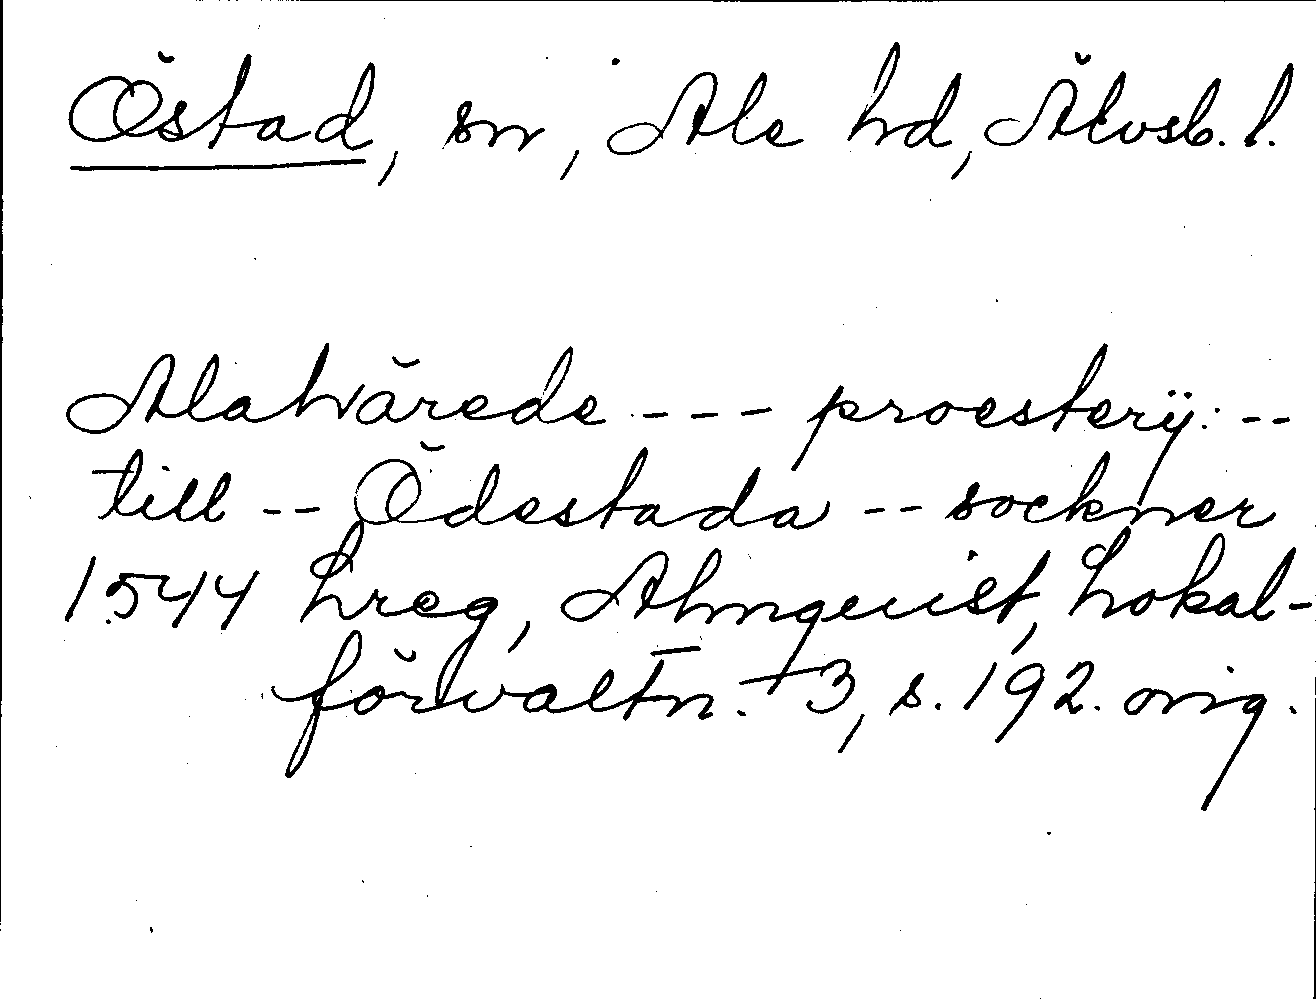 Östad, sn, Ale hd, Älvsb. l.
Alahärede --- proesterij: --
till -- Ödestada -- sockner
1544 Lreg, Almquist, Lokal-
förvaltn. 3, s. 192. orig.